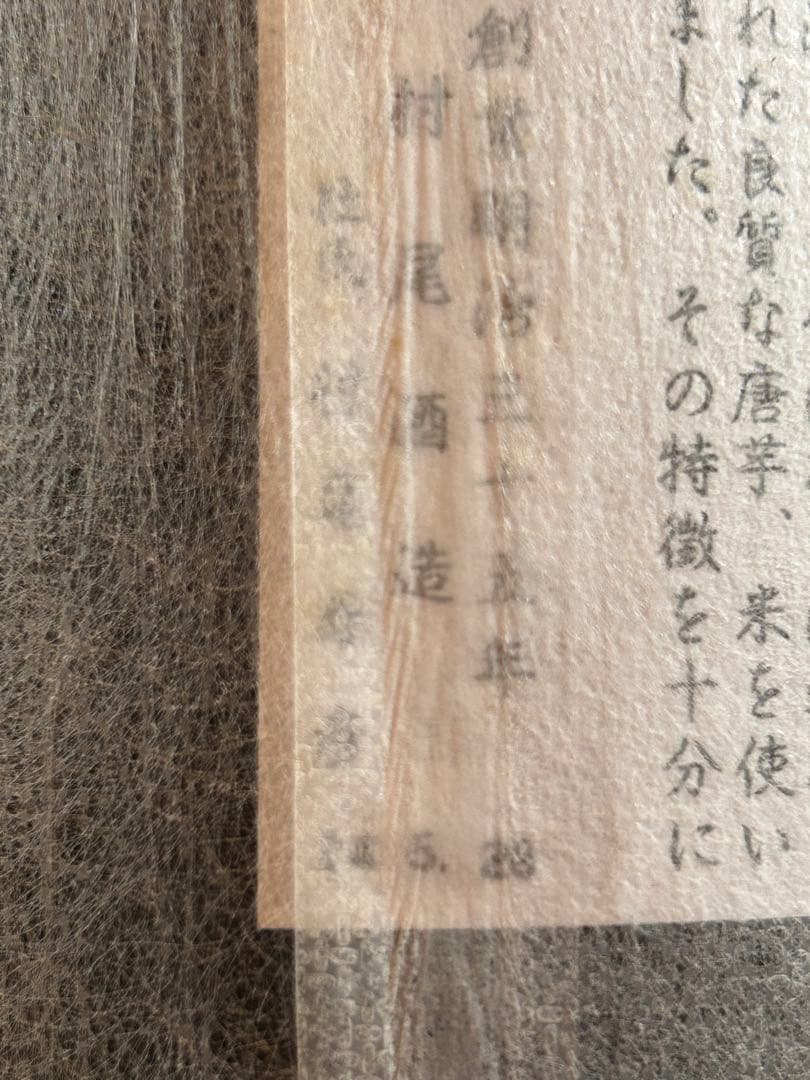 れた良質な唐芋、米を使い
ました。その特徴を十分に
創業明治三十五年
村尾酒造
5. 28